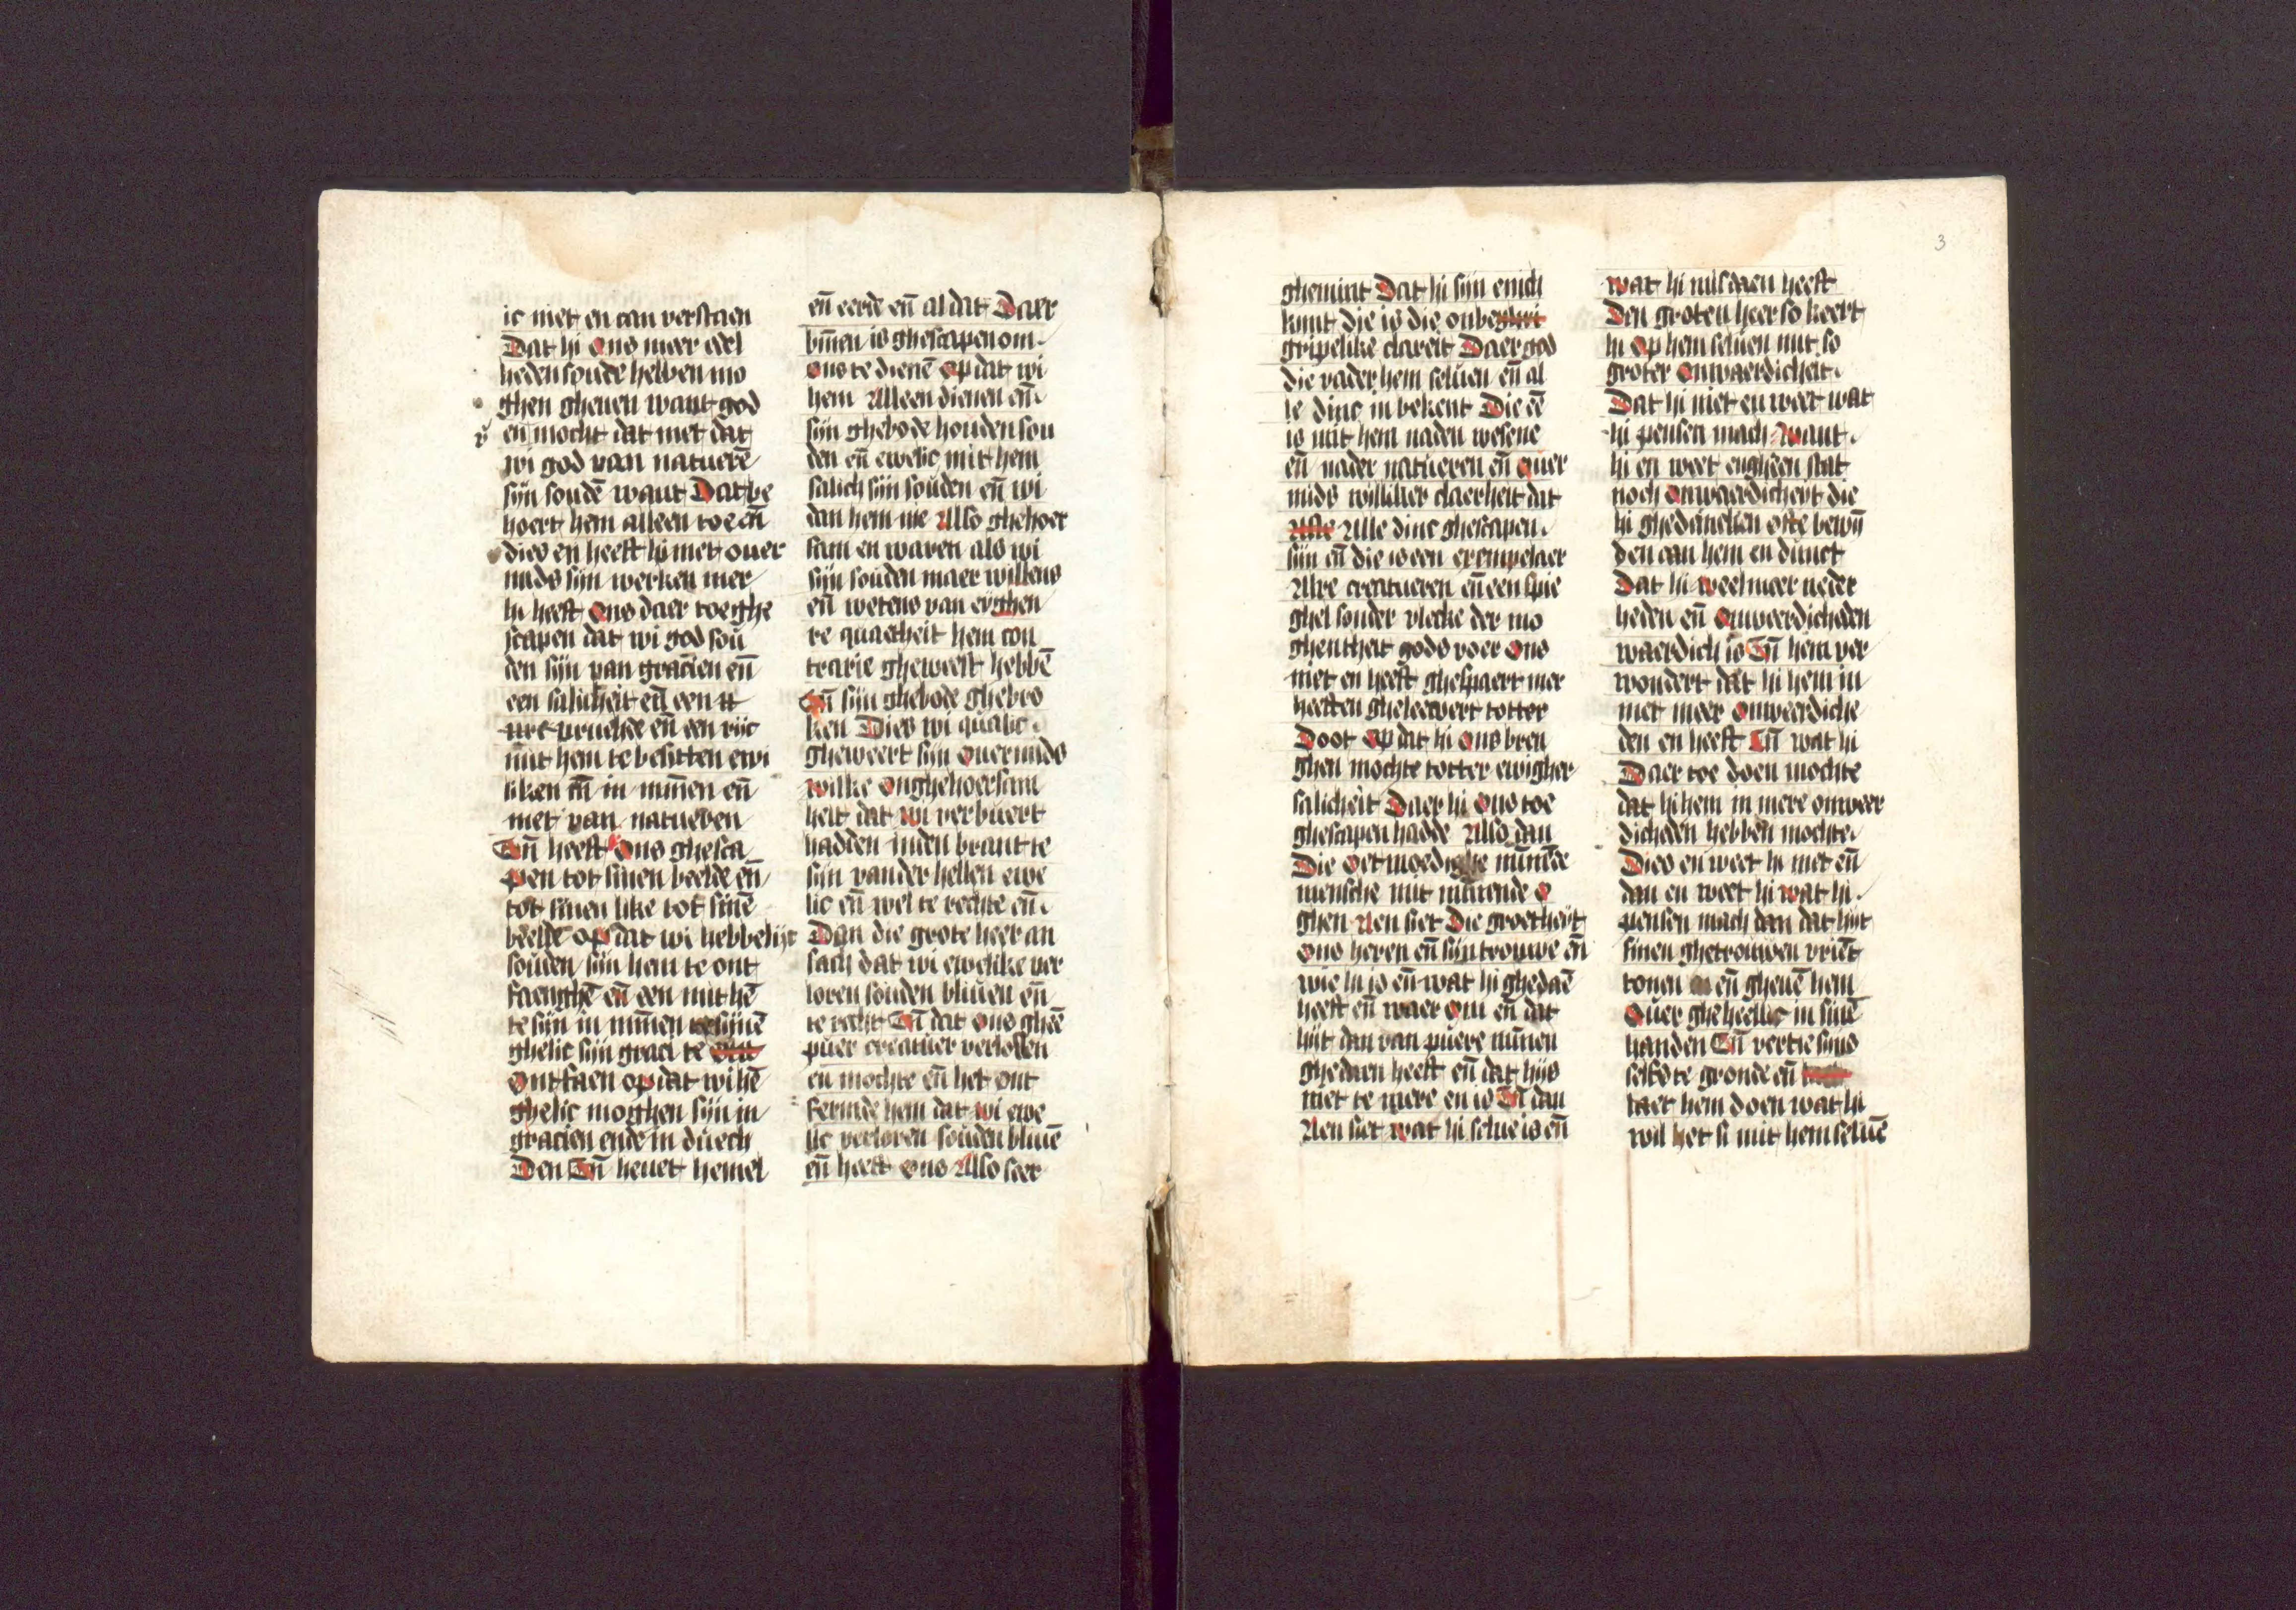 ic niet en can verstaen
Dat hi ons meer edel
heden soude hebben mo
ghen gheuen want god
en mocht dat niet dat
wi god van natuerē
sijn soudē want Dat be
hoert hem alleen toe eñ
dies en heeft hi niet ouer
mids sijn werken mer
hi heeft ons daer toe ghe
scapen dat wi god sou
den sijn van gracien eñ
een salicheit eñ een
vruechde eñ een rijc
mit hem te besitten ewi
liken eñ in mīnen eñ
niet van natueren
Eñ heeft ons ghesca
pen tot sinen beelde eñ
tot sinen like tot sinē
beelde op dat wi hebbelijc
souden sijn hem te ont
faenghē eñ een mit hē
te sijn in mīnen
ghelic sijn graci te
ontfaen op dat wi hē
ghelic moghen sijn in
gracien ende in duech
Den Eñ heuet hemel
eñ eerde eñ al dat Daer
bīnen is ghescapen om
ons te dienē op dat wi
hem Alleen dienen eñ
sijn ghebode houden sou
den eñ ewelic mit hem
salich sijn souden eñ wi
dan hem nie Also ghehoer
sam en waren als wi
sijn souden maer willens
eñ wetens van eyghen
re quaetheit hem con
trarie gheweest hebbē
Eñ sijn ghebode ghebro
ken Dies wi qualic
gheweert sijn ouermids
wilke onghehoersam
heit dat wi verbuert
hadden inden brant te
sijn vander hellen ewe
lic eñ wel te rechte eñ
Dan die grote heer an
sach dat wi ewelike ver
loren souden bliuen eñ
te recht Eñ dat ons gheē
puer creatuer verlossen
en mochte eñ het ont
fermde hem dat wi ewe
lic verloren souden bliuē
eñ heeft ons Also seer
3
ghemint Dat hi sijn enich
kint die is die onbe
gripelike clareit Daer god
die vader hem seluen eñ al
le dinc in bekent Die eē
is mit hem naden wesene
eñ nader natueren eñ ouer
mids williker claerheit dat
Alle dinc ghescapen
sijn eñ die is een exempelaer
Alre creatueren eñ een spie
ghel sonder vlecke der mo
ghentheit gods voer ons
niet en heeft ghespaert mer
heeften gheleevert totter
Doot op dat hi ons bren
ghen mochte totter ewigher
salicheit Daer hi ons toe
ghescapen hadde Also dan
Die oetmoedighe mīnēde
mensche mit mīnende o
ghen Aen siet Die groetheijt
ons heren eñ sijn trouwe eñ
wie hi is eñ wat hi ghedaē
heeft eñ waer om eñ dat
hijt dan van puere mīnen
ghedaen heeft eñ dat hijs
niet te mere en is Eñ dan
Aen siet wat hi selue is eñ
wat hi misdaen heeft
Den groten heer so keert
hi op hem seluen mit so
groter onwaerdicheit
Dat hi niet en weet wat
hi pensen mach want
hi en weet engheen stat
noch onwaerdicheyt die
hi ghedencken ofte bewij
den can hem en dunct
Dat hi veel meer neder
heden eñ onweerdicheden
waerdich is Eñ hem ver
wondert dat hi hem in
niet meer onweerdiche
den en heeft Eñ wat hi
Daer toe doen mochte
dat hi hem in mere onweer
dicheden hebben mochte
Dies en weet hi niet eñ
dan en weet hi wat hi
pensen mach dan dat hijt
sinen ghetrouwen vriēt
tonen eñ gheuē hem
ouer gheheellic in sinē
handen Eñ vertie sijns
selfs te gronde eñ
laet hem doen wat hi
wil het si mit hem seluē